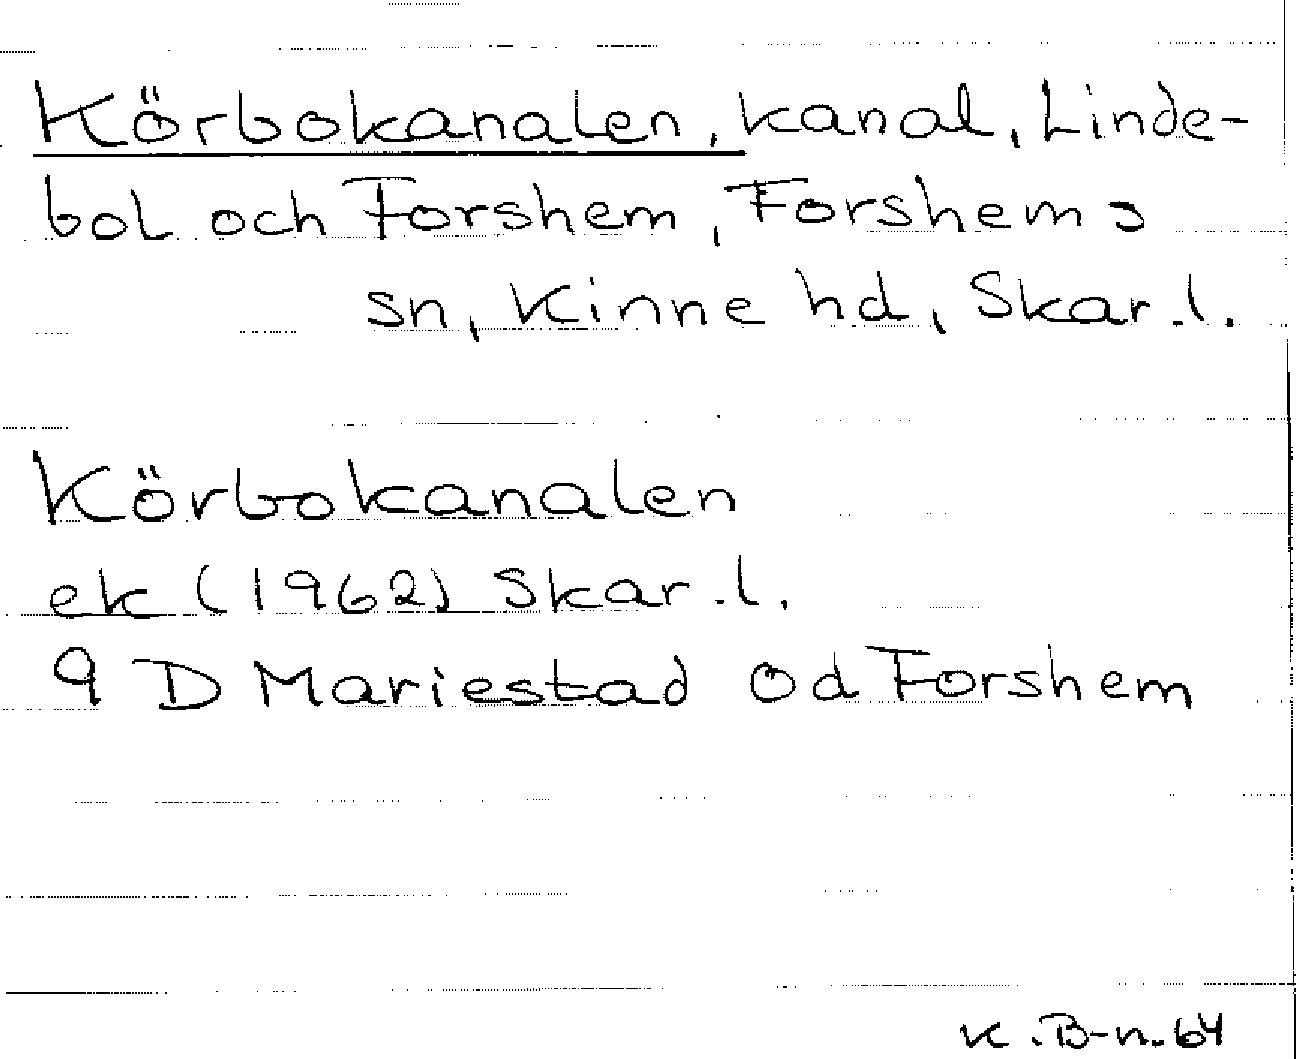 Körbokanalen, kanal, Linde-
bol och Forshem, Forshems
sn, Kinne hd, Skar.l.
Körbokanalen
ek (1962) Skar.l.
9 D Mariestad Od Forshem
K.B-n.64